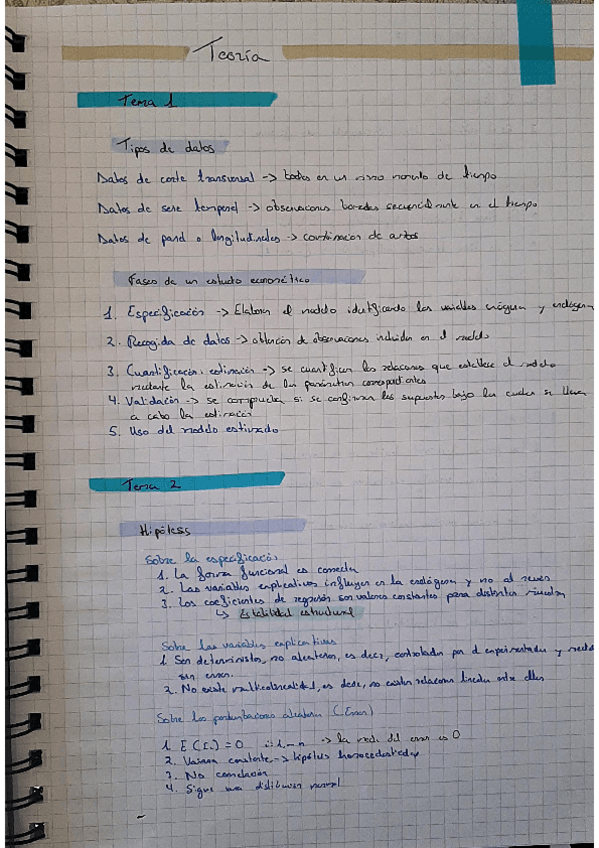 Teoría
Tema 1
Tipos de datos
Datos de corte transversal -> todos en un mismo momento de tiempo
Datos de serie temporal -> observaciones tomadas secuencialmente en el tiempo
Datos de panel o longitudinales -> combinación de ambos
Fases de un estudio econométrico
1. Especificación -> Elaborar el modelo identificando las variables exógena y endógena
2. Recogida de datos -> obtención de observaciones incluidas en el modelo
3. Cuantificación, estimación -> se cuantifican las relaciones que establece el modelo
mediante la estimación de los parámetros correspondientes
4. Validación -> se comprueba si se confirman los supuestos bajo los cuales se lleva
a cabo la estimación
5. Uso del modelo estimado
Tema 2
Hipótesis
Sobre la especificación
1. La forma funcional es correcta
2. Las variables explicativas influyen en la endógena y no al revés
3. Los coeficientes de regresión son valores constantes para distintos
↳ Estabilidad estructural
Sobre las variables explicativas
1. Son deterministas, no aleatorias, es decir, controladas por el experimentador y
sin error.
2. No existe multicolinealidad, es decir, no existen relaciones lineales entre ellas
Sobre las perturbaciones aleatorias (Error)
1. E(Ei) = 0 i=1,...n -> la media del error es 0
2. Varianza constante -> hipótesis homocedasticidad
3. No correlación
4. Sigue una distribución normal